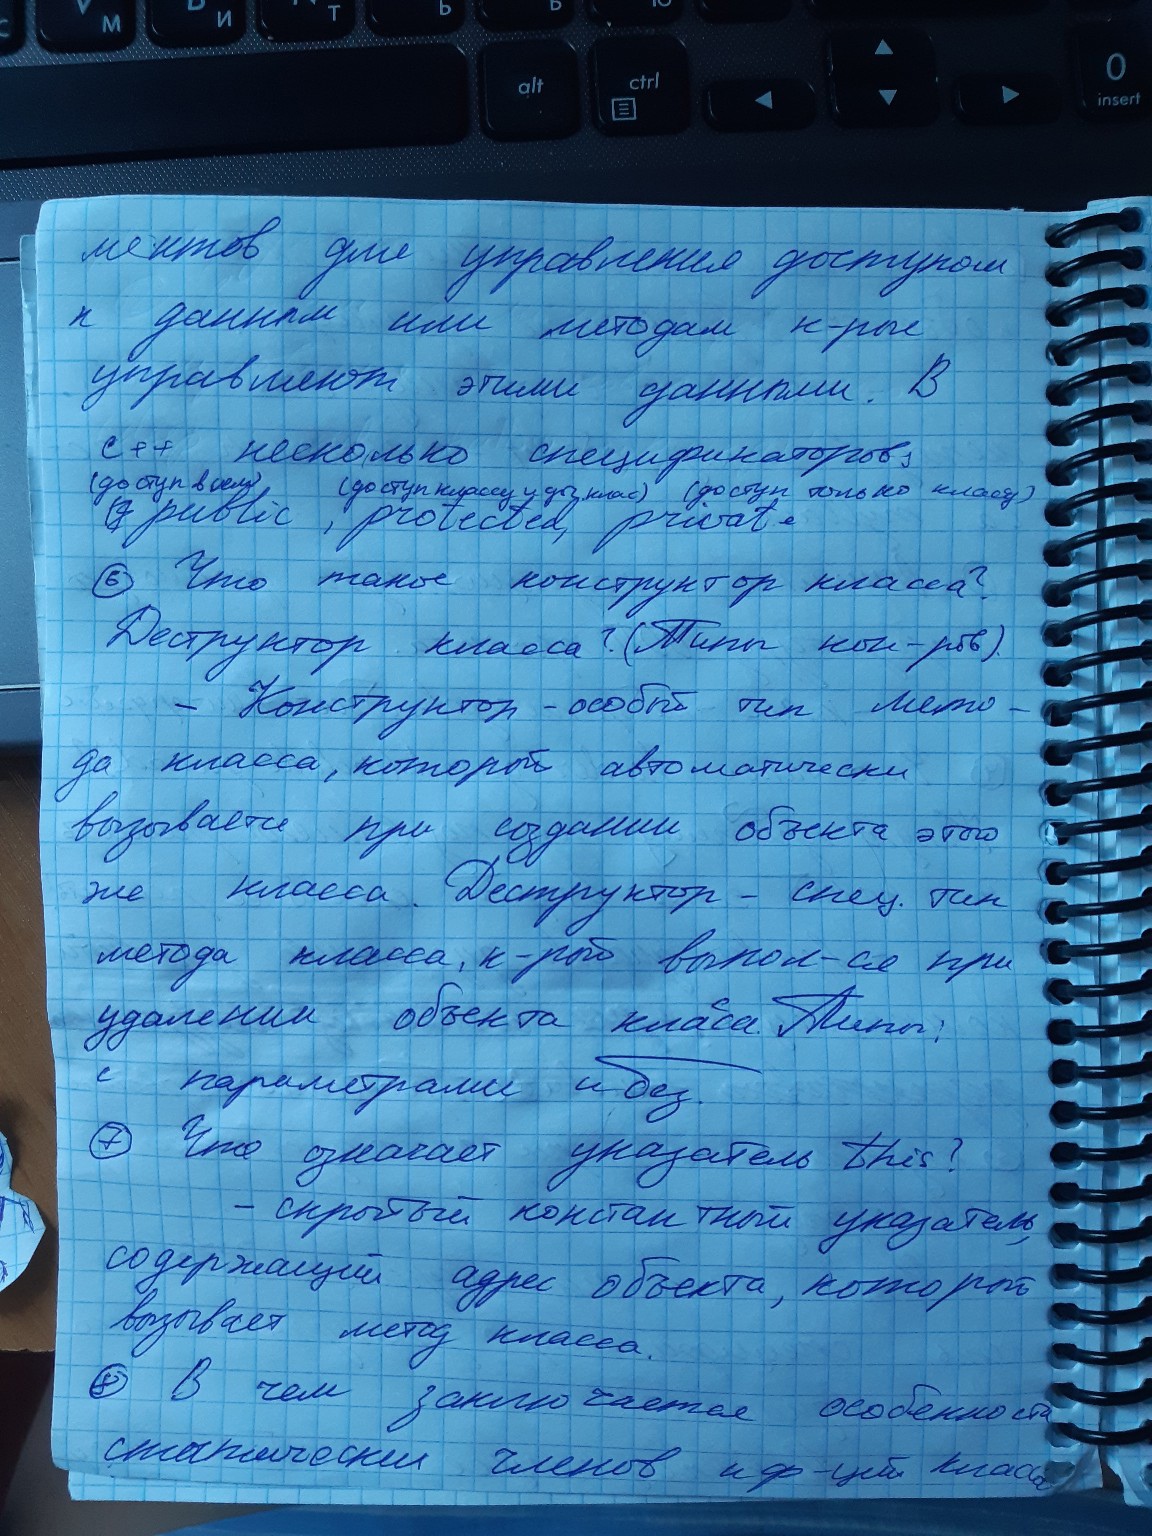 С М И Т Ь Ь Ю
alt ctrl 0
insert
ментов для управления доступом
к данным или методам к-рые
управляют этими данными. В
с++ несколько спецификаторов:
(доступ всем) (доступ классу и др. клас) (доступ только классу)
public, protected, private
⑥ Что такое конструктор класса?
Деструктор класса? (Типы кон-ров).
- Конструктор - особый тип мето-
да класса, который автоматически
вызывается при создании объекта этого
же класса. Деструктор - спец. тип
метода класса, к-рый выпол-ся при
удалении объекта класса. Типы:
с параметрами и без.
⑦ Что означает указатель this?
- скрытый константный указатель,
содержащий адрес объекта, который
вызывает метод класса.
⑧ В чем заключается особенность
статически членов и ф-ций класса